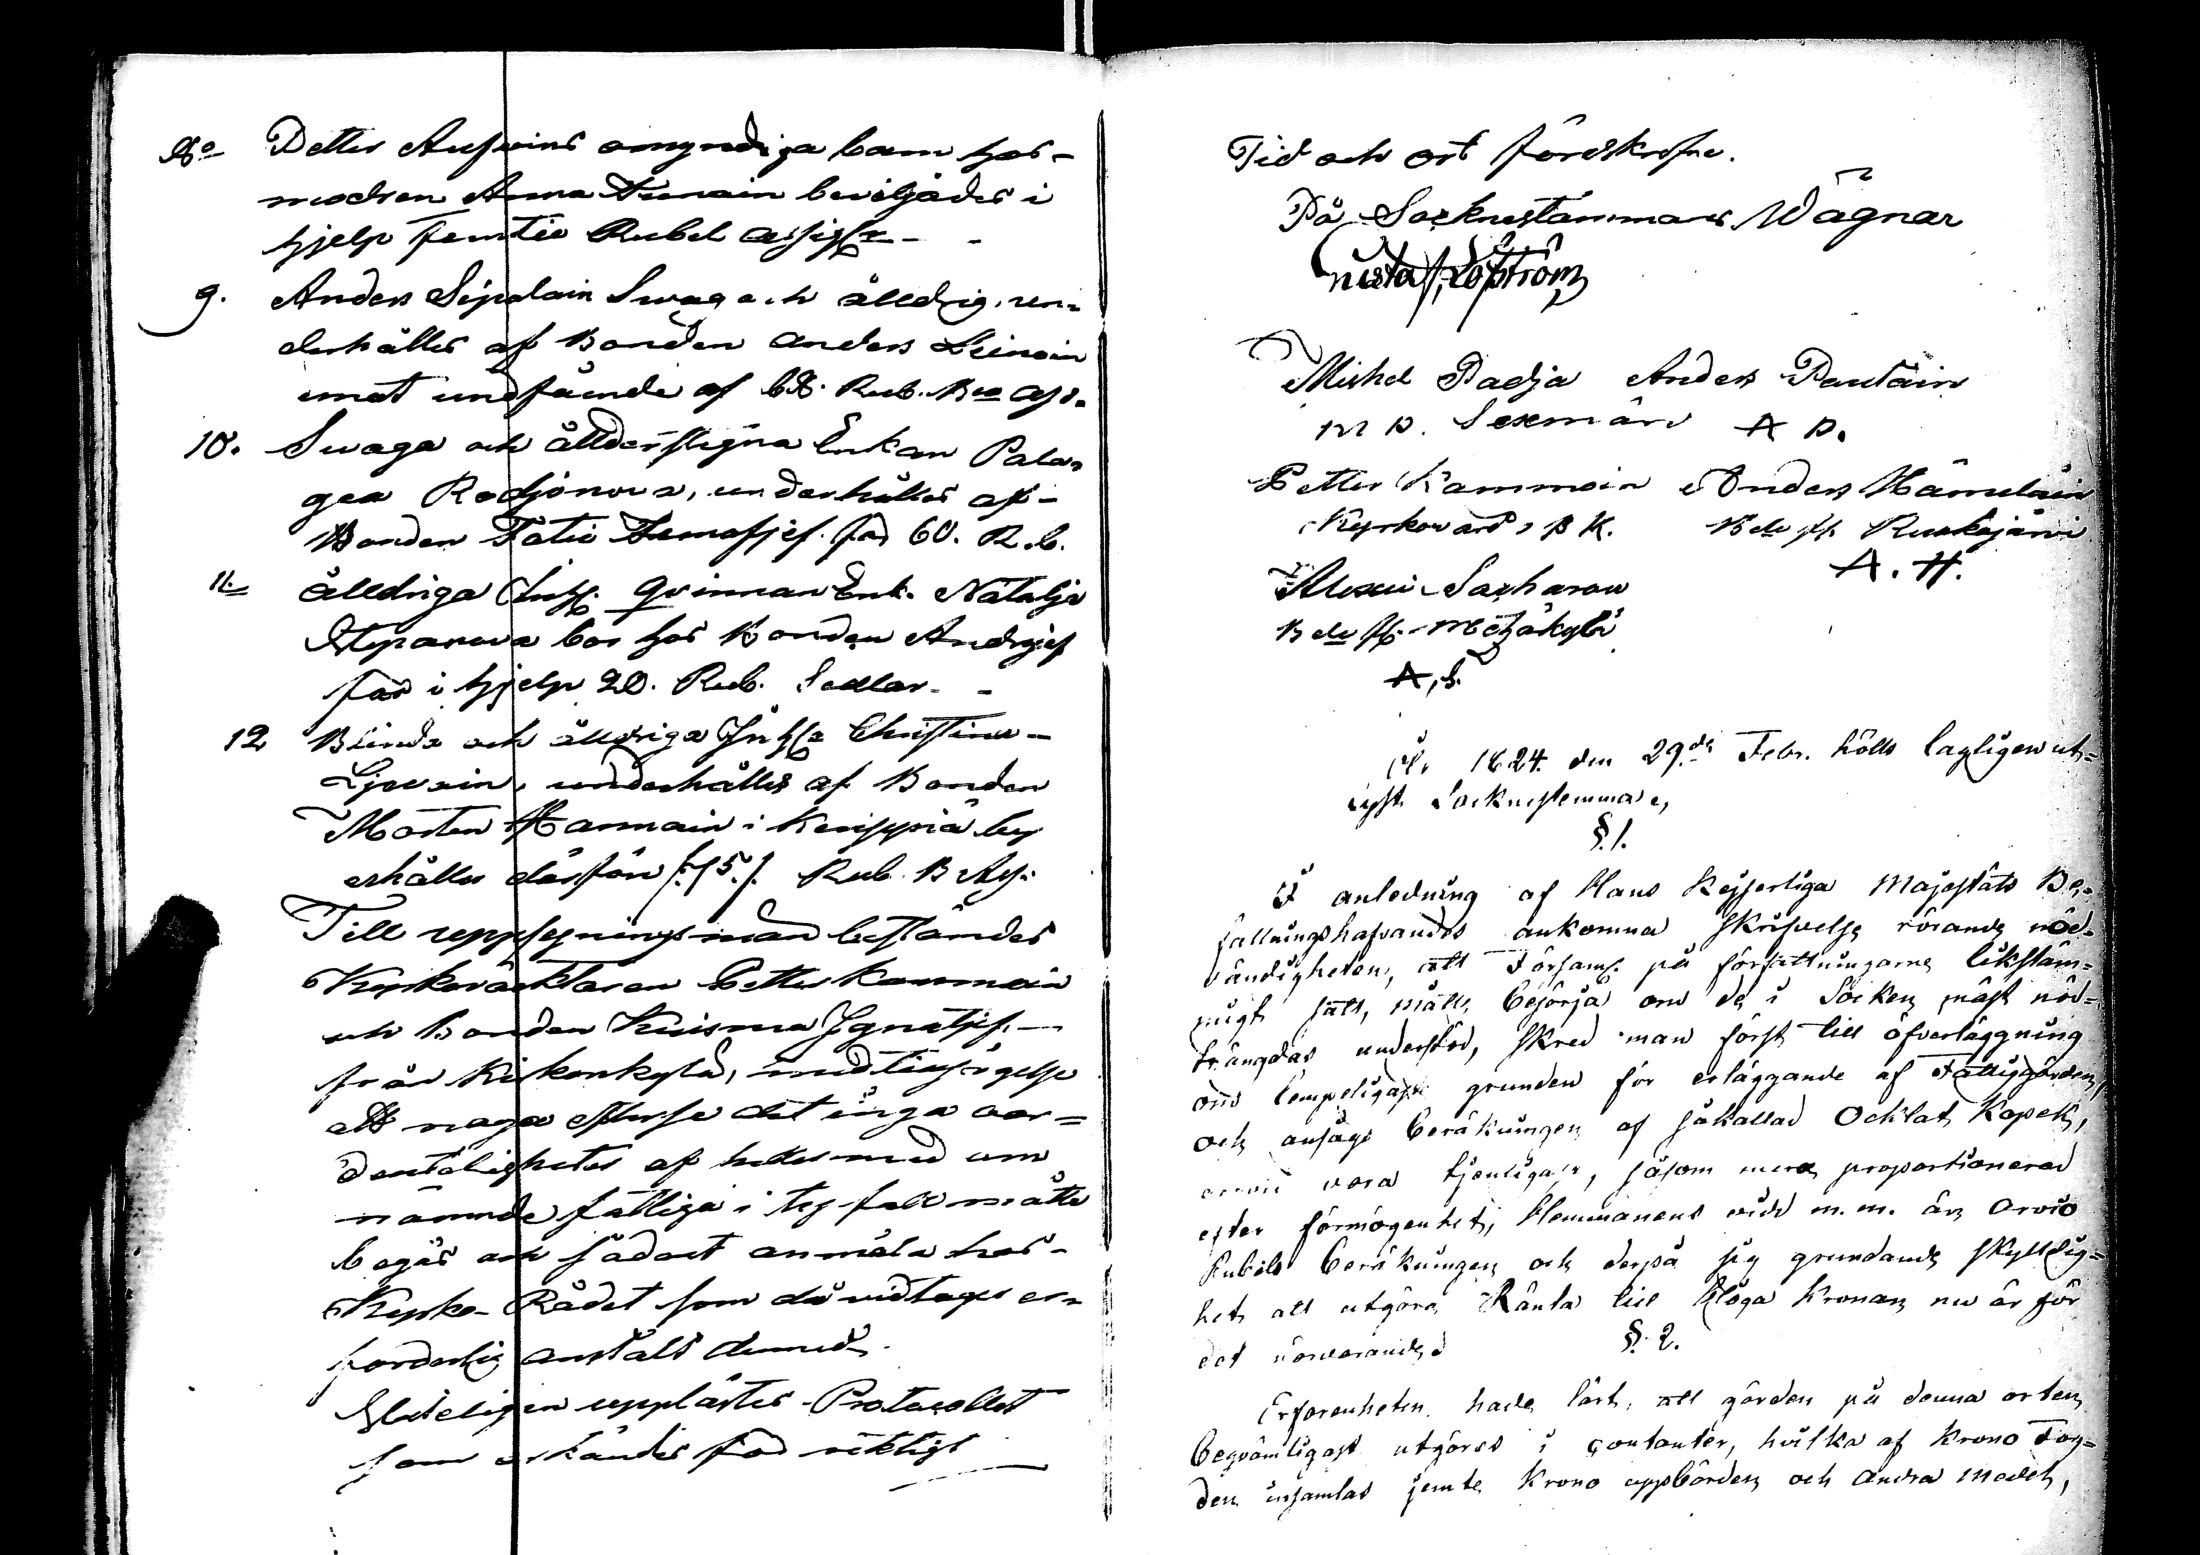 8o Petter omyndiga barn hos-
modren Anna beviljades i
hjelp femtio Rubel
9. Anders Sipolain Swag och ålldrig, un-
derhålles af Bonden Anders Leinoin
emot undfående af 68. Rub. Bco
10. Swaga och ållderstigna Enkan Pala-
gea Rodjonova, underhålles af
Bonden får 60. R. b.
11. ålldriga qvinnan Enk. Natalja
Stepanova bor hos Bonden Andrejef
får i hjelp 20. Rub. Sedlar
12 Blinda och ålldriga Christina
underhålles af Bonden
Morten Hannain i by
erhåller därföre /:75./. Rub. B
Till uppsegningsmän beständes
Kyrkoväcktaren Petter Kammoin
och Bonden Kuisma Ignatjef
från Kirkonkylä, med tillsägelse
att noga efterse det inga oor-
dentligheter af hittils med om
nämnde fattiga i by fall måtte
begås och sådant anmäla hos
Kyrko-Rådet som då vidtager er-
forderlig anstalt derued.
Slúteligen upplästes Protocollet
som erkändes för riktigt
Tid och ort förskrifne.
På Socknestämmans Wägnar
Gustaf Löfström
Michel Padja Anders Pautäin
M P. Sexmän A P.
Petter Kammoin Anders Hämäläin
Kyrkovärd, P K. Bde fr. Ruokojärvi
A. H.
Alexei Sacharow
Bde fr. Metzäkylä
A, S.
År 1824. den 29de Febr. hölls lagligen ut-
lyst Socknestemma,
§. 1.
I anledning af Hans Kejserliga Majestäts Be-
fallningshafvandes ankomna skrifvelse rörande nöd-
vändigheten, att Församl. på författningarne likstäm-
migt sätt, måtte besörja om de i Socken mäst nöd-
trängdas understöd, skred man först till öfverläggning
om lempeligaste grunden för erläggande af Fattiggården,
och ansågs beräkningen af såkallad Ocklat Kopek,
vara tjenligast, såsom mera proportionerad
efter förmögenhet, Hemmanens vidd m.m. än Orvio
Rubels beräkningen och derpå sig grundande skyldig-
het att utgöra Ränta till Höga Kronan nu är för
det närvarande.
§. 2.
Erfarenheten hade lärt, att gärden på denna orten
beqvämligast utgöres i contanter, hvilka af Krono Fog-
den insamlas jemte Krono uppbörden och andra medel,